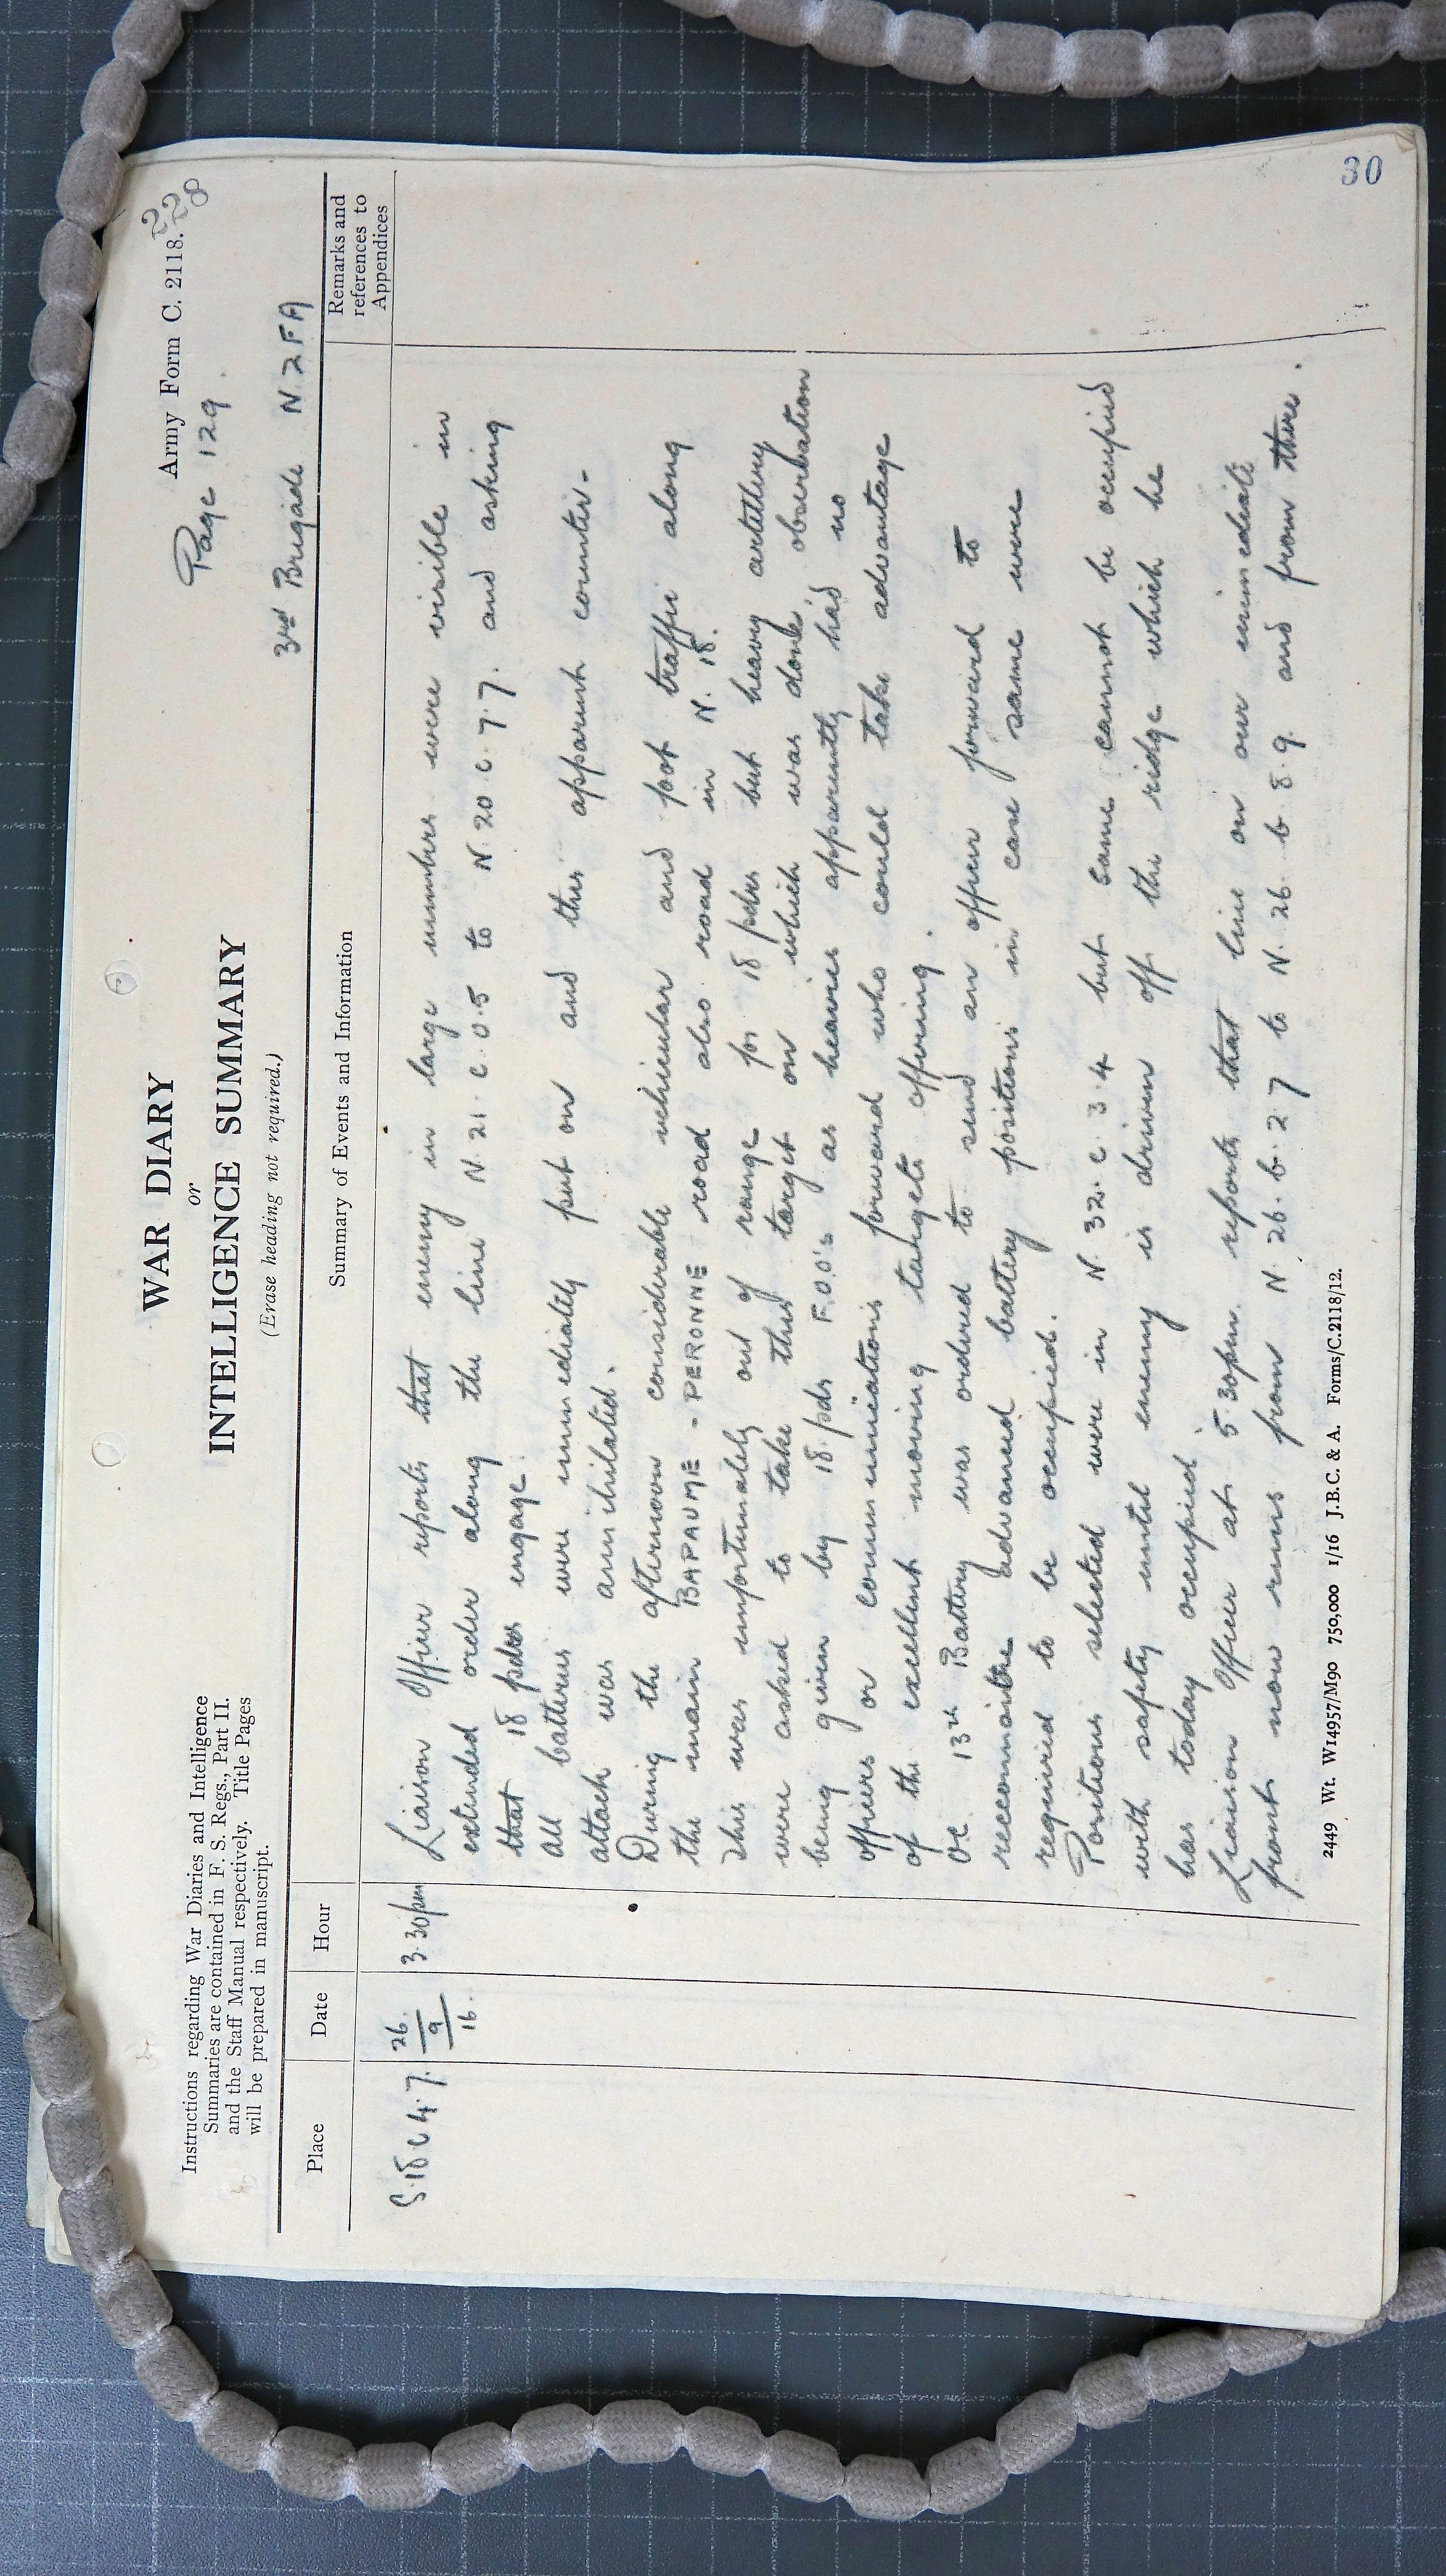 Army Form C. 2118.
228
WAR DIARY
or
INTELLIGENCE SUMMARY
(Erase heading not required.)
Instructions regarding War Diaries and Intelligence
Summaries are contained in F. S. Regs., Part II.
and the Staff Manual respectively. Title Pages
will be prepared in manuscript.
Page 129.
3rd Brigade N.Z.F.A
Place
Date
Hour
Summary of Events and Information
Remarks and
references to
Appendices
S.18 c 4.7.
26.
9
16.
3.30pm
Liaison Officer reports that enemy in large numbers were visible in
extended order along the line N.21.c.0.5 to N.20.c.7.7. and asking
that 18 pdrs engage.
All batteries were immediately put on and this apparent counter-
attack was annihilated.
During the afternoon considerable vehicular and foot traffic along
the main BAPAUME - PERONNE road also road in N.18.
This was unfortunately out of range for 18 pdrs but heavy artillery
were asked to take this target on which was done observation
being given by 18 pdr F.O.O's as heavies apparently had no
officers or communications forward who could take advantage
of the excellent moving targets offering.
OC 13th Battery was ordered to send an officer forward to
reconnoitre advanced battery positions in case same were
required to be occupied.
Positions selected were in N.32.c.3.4 but same cannot be occupied
with safety until enemy is driven off the ridge which he
has today occupied.
Liaison Officer at 5.30pm reports that line on our immediate
front now runs from N.26.b.2.7 to N.26.b.8.9. and from there.
2449 Wt. W14957/M90 750,000 1/16 J.B.C. & A. Forms/C.2118/12.
30